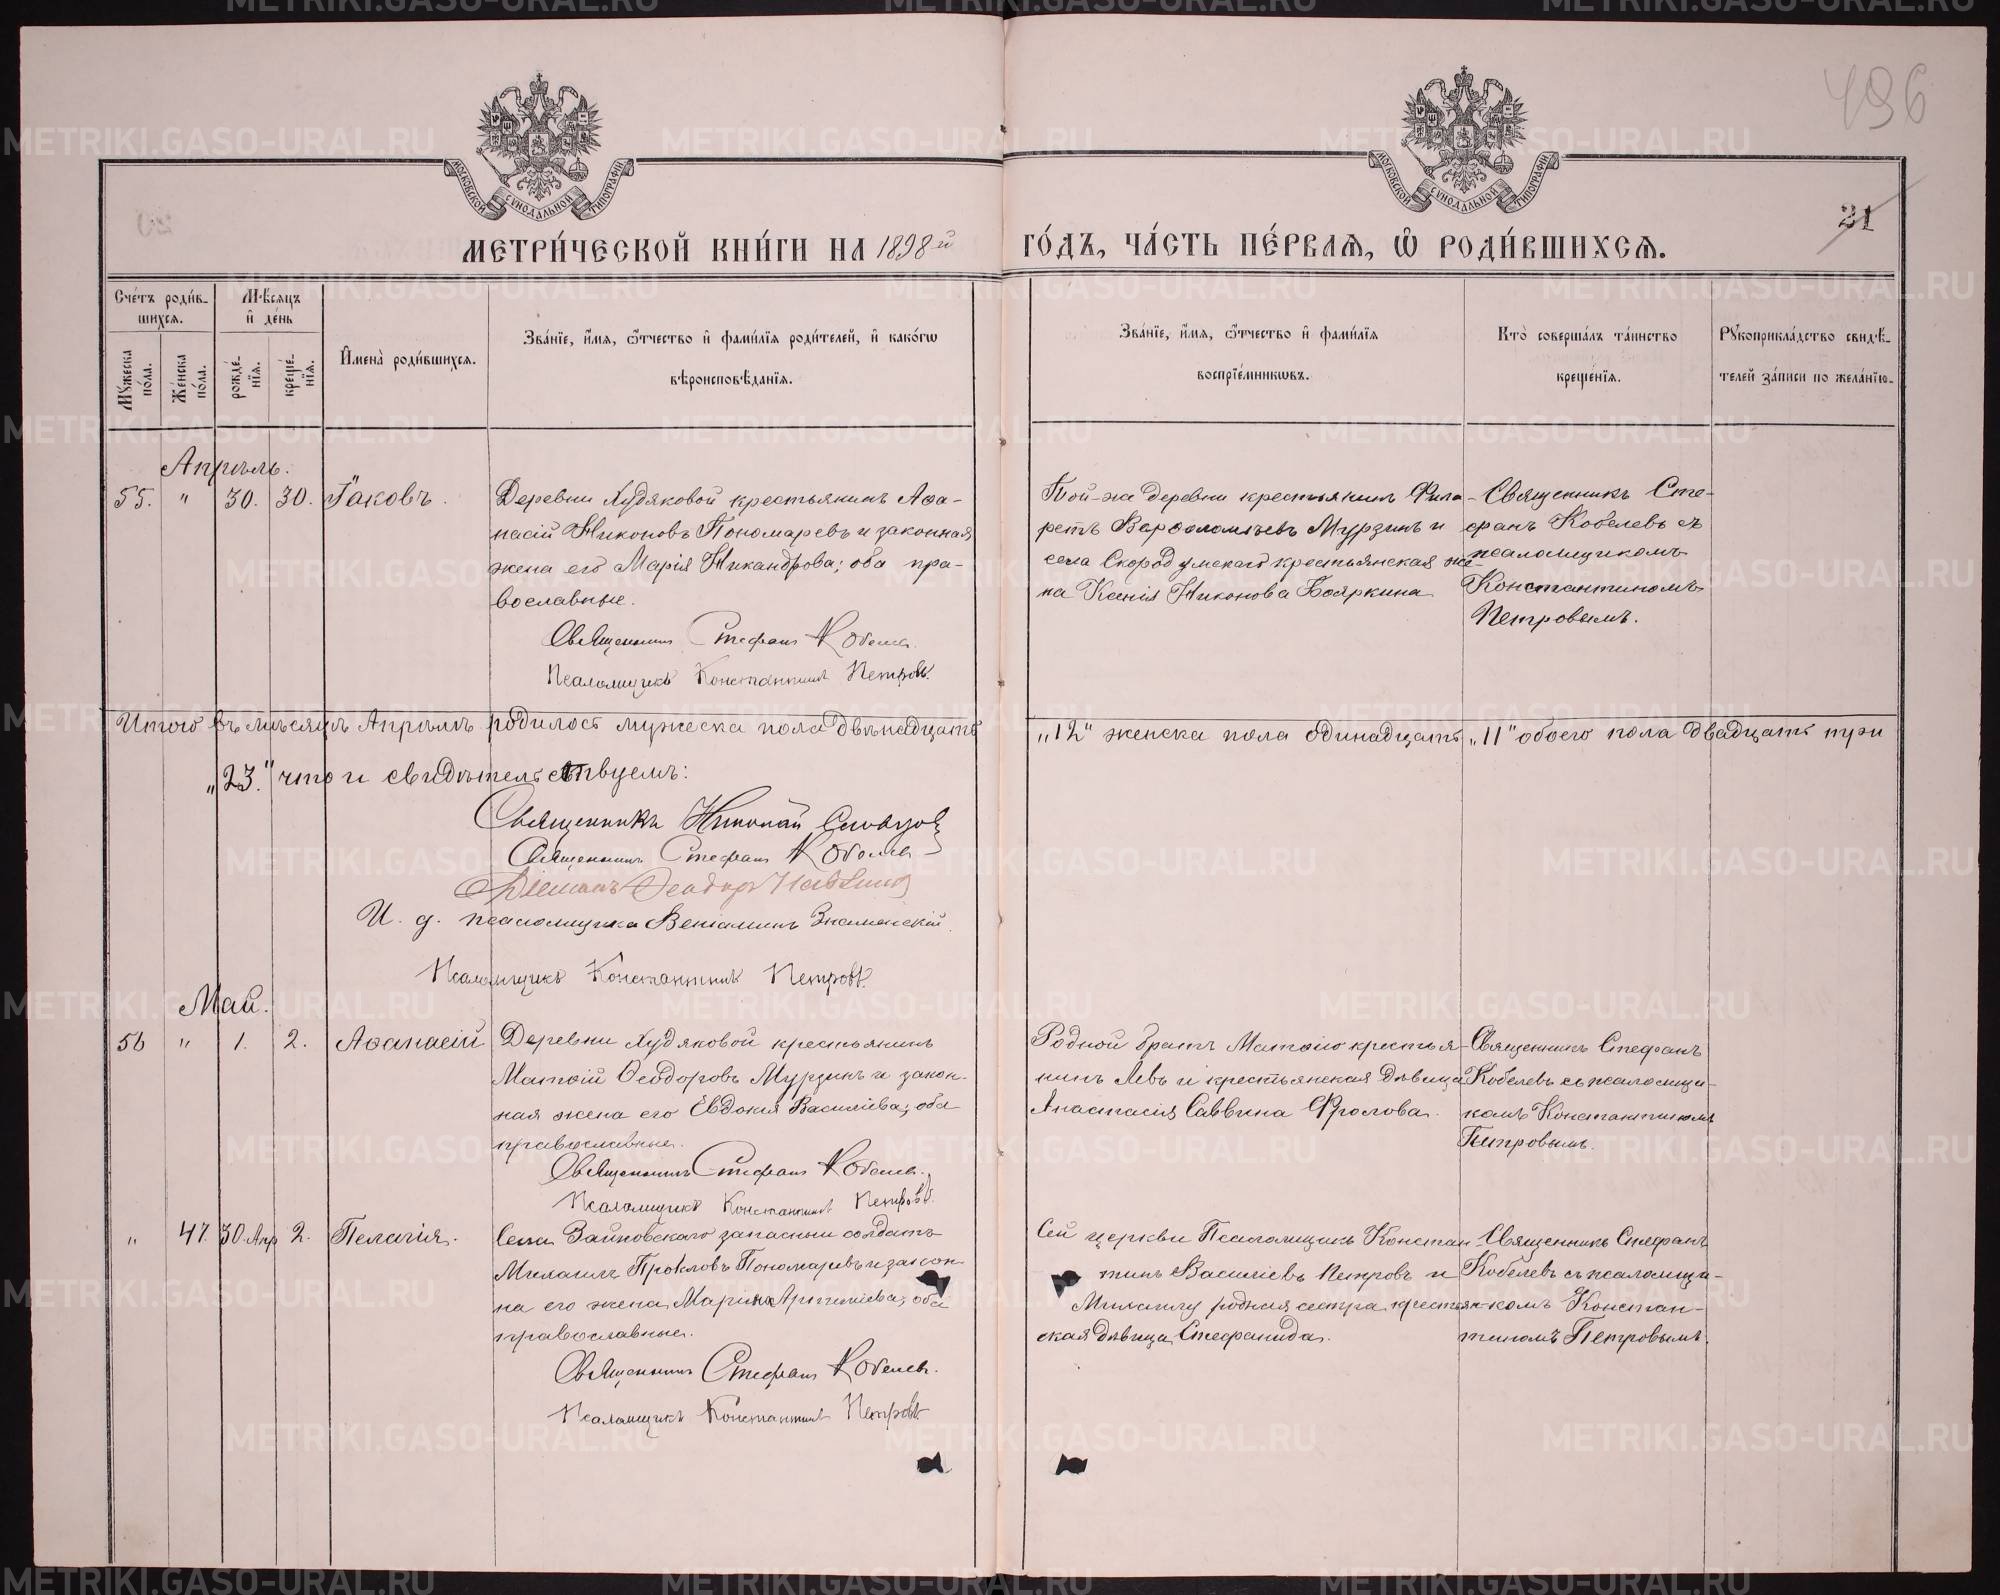 496
МОСКОВСКОЙ СѴНОДАЛЬНОЙ ТИПОГРАФІИ
МОСКОВСКОЙ СѴНОДАЛЬНОЙ ТИПОГРАФІИ
21
МЕТРИ́ЧЕСКОЙ КНИ́ГИ НА 1898й ГО́ДЪ, ЧА́СТЬ ПЕ́РВАѦ, Ѡ҆ РОДИ́ВШИХСѦ.
Сче́тъ роди́в-
шихсѧ.
Мѣ́сѧцъ
и҆ де́нь
Мꙋ́жеска по́ла.
Же́нска по́ла.
рожде́-
нїѧ.
креще́-
нїѧ.
И҆мена̀ роди́вшихсѧ.
Зва́нїе, и҆́мѧ, ѻ҆́тчество и҆ фами́лїѧ роди́телей, и҆ како́гѡ
вѣроисповѣ́данїѧ.
Зва́нїе, и҆́мѧ, ѻ҆́тчество и҆ фами́лїѧ
воспрїе́мникѡвъ.
Кто̀ соверша́лъ та́инство
креще́нїѧ.
Рꙋкоприкла́дство свидѣ́-
телей за́писи по жела́нїю.
Апрѣль.
55. " 30. 30. Іаковъ.
Деревни Худяковой крестьянинъ Аѳа-
насій Никоновъ Пономаревъ и законная
жена его Марія Никандрова; оба пра-
вославные.
Священникъ Стефанъ Кобелевъ.
Псаломщикъ Константинъ Петровъ.
Той-же деревни крестьянинъ Фила-
ретъ Варѳоломѣевъ Мурзинъ и
села Скородумскаго крестьянская же-
на Ксенія Никонова Бояркина
Священникъ Сте-
фанъ Кобелевъ съ
псаломщикомъ
Константиномъ
Петровымъ.
Итого въ мѣсяцѣ Апрѣлѣ родилось мужеска пола двѣнадцать „12" женска пола одинадцать „11" обоего пола двадцать три
„23." что и свидѣтельствуемъ:
Священникъ Николай Словцовъ
Священникъ Стефанъ Кобелевъ
Діаконъ Ѳеодоръ
И. д. псаломщика Веніаминъ Знаменскій.
Псаломщикъ Константинъ Петровъ.
Май.
56 " 1. 2. Аѳанасій
Деревни Худяковой крестьянинъ
Матѳій Ѳеодоровъ Мурзинъ и закон-
ная жена его Евдокія Василіева; оба
православные.
Священникъ Стефанъ Кобелевъ.
Псаломщикъ Константинъ Петровъ.
Родной братъ Матѳію крестья-
нинъ Левъ и крестьянская дѣвица
Анастасія Саввина Фролова.
Священникъ Стефанъ
Кобелевъ съ псаломщи-
комъ Константиномъ
Петровымъ.
" 47. 30. Апр 2. Пелагія.
Села Зайковскаго запасный солдатъ
Михаилъ Прокловъ Пономаревъ и закон-
на его жена Марина Артеміева; оба
православные.
Священникъ Стефанъ Кобелевъ.
Псаломщикъ Константинъ Петровъ
Сей церкви Псаломщикъ Констан-
тинъ Василіевъ Петровъ и
Михаилу родная сестра крестьян-
ская дѣвица Стефанида.
Священникъ Стефанъ
Кобелевъ съ псаломщи-
комъ Констан-
тиномъ Петровымъ.
METRIKI.GASO-URAL.RU